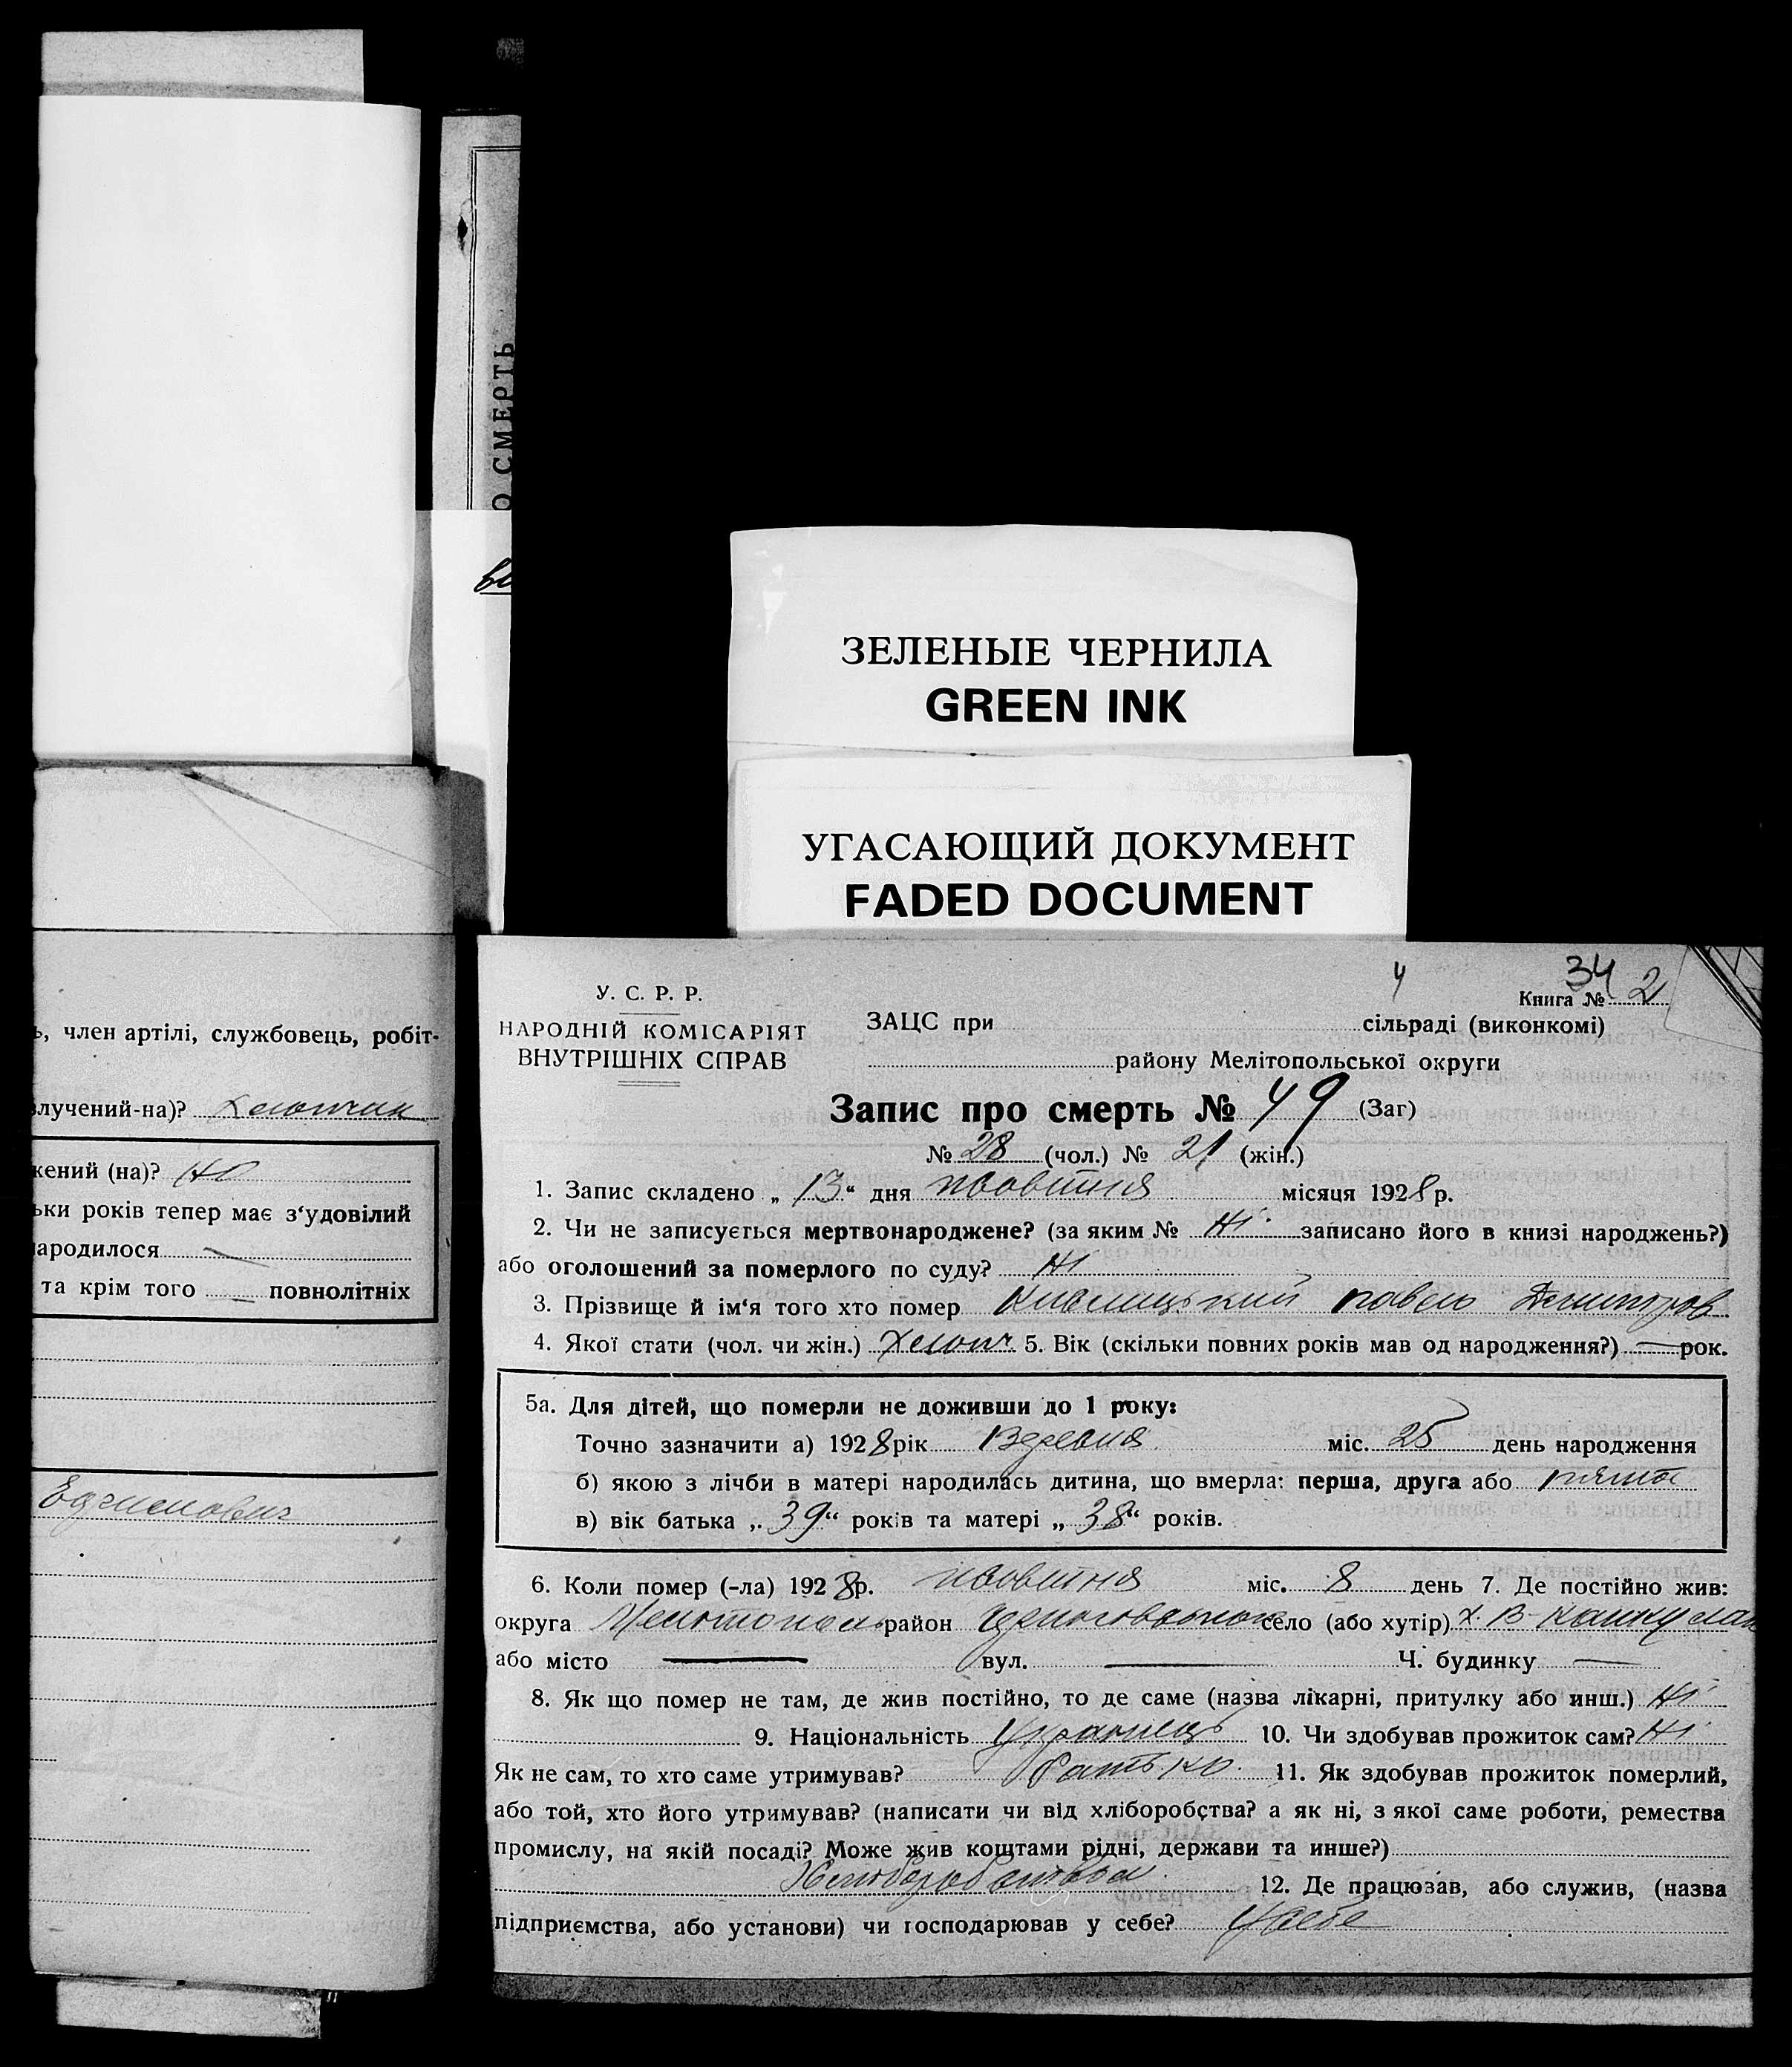 О СМЕРТЬ
ЗЕЛЕНЫЕ ЧЕРНИЛА
GREEN INK
УГАСАЮЩИЙ ДОКУМЕНТ
FADED DOCUMENT
ь, член артілі, службовець, робіт-
злучений-на)? хлопчик
жений (на)? Ні
ьки років тепер має з‘удовілий
народилося —
та крім того — повнолітніх
4 34
У. С. Р. Р.
Книга № 2
НАРОДНІЙ КОМІСАРІЯТ
ВНУТРІШНІХ СПРАВ
ЗАЦС при сільраді (виконкомі)
району Мелітопольської округи
Запис про смерть № 49 (Заг)
№ 28 (чол.) № 21 (жін.)
1. Запис складено „ 13 “ дня жовтня місяця 1928 р.
2. Чи не записується мертвонароджене? (за яким № Ні записано його в книзі народжень?)
або оголошений за померлого по суду? Ні
3. Прізвище й ім‘я того хто помер Павло
4. Якої стати (чол. чи жін.) хлопч 5. Вік (скільки повних років мав од народження?) — рок.
5а. Для дітей, що померли не доживши до 1 року:
Точно зазначити а) 1928 рік міс. 25 день народження
б) якою з лічби в матері народилась дитина, що вмерла: перша, друга або пята
в) вік батька „ 39 “ років та матері „ 38 “ років.
6. Коли помер (-ла) 1928 р. жовтня міс. 8 день 7. Де постійно жив:
округа Мелитополь район село (або хутір) х. В-
або місто — вул. — Ч. будинку —
8. Як що помер не там, де жив постійно, то де саме (назва лікарні, притулку або инш.) Ні
9. Національність Украінець 10. Чи здобував прожиток сам? Ні
Як не сам, то хто саме утримував? батько. 11. Як здобував прожиток померлий,
або той, хто його утримував? (написати чи від хліборобства? а як ні, з якої саме роботи, ремества
промислу, на якій посаді? Може жив коштами рідні, держави та инше?)
Хліборобства 12. Де працював, або служив, (назва
підприємства, або установи) чи господарював у себе? У себе